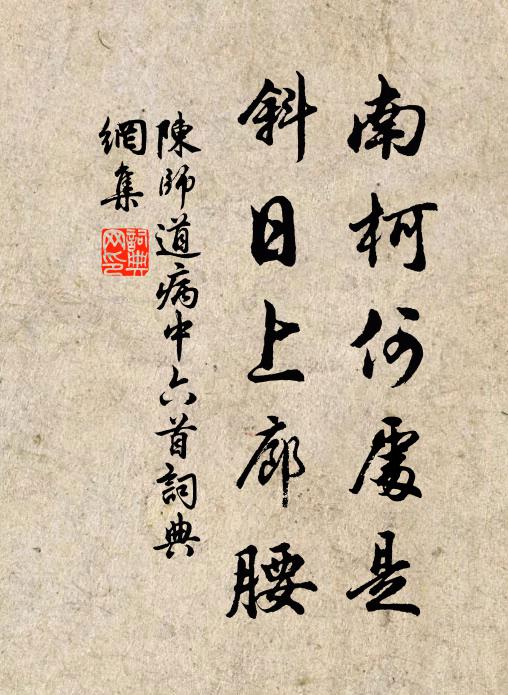 南柯何處是
斜日上廊腰
陳師道病中六首詞典
網集
詞典
网印